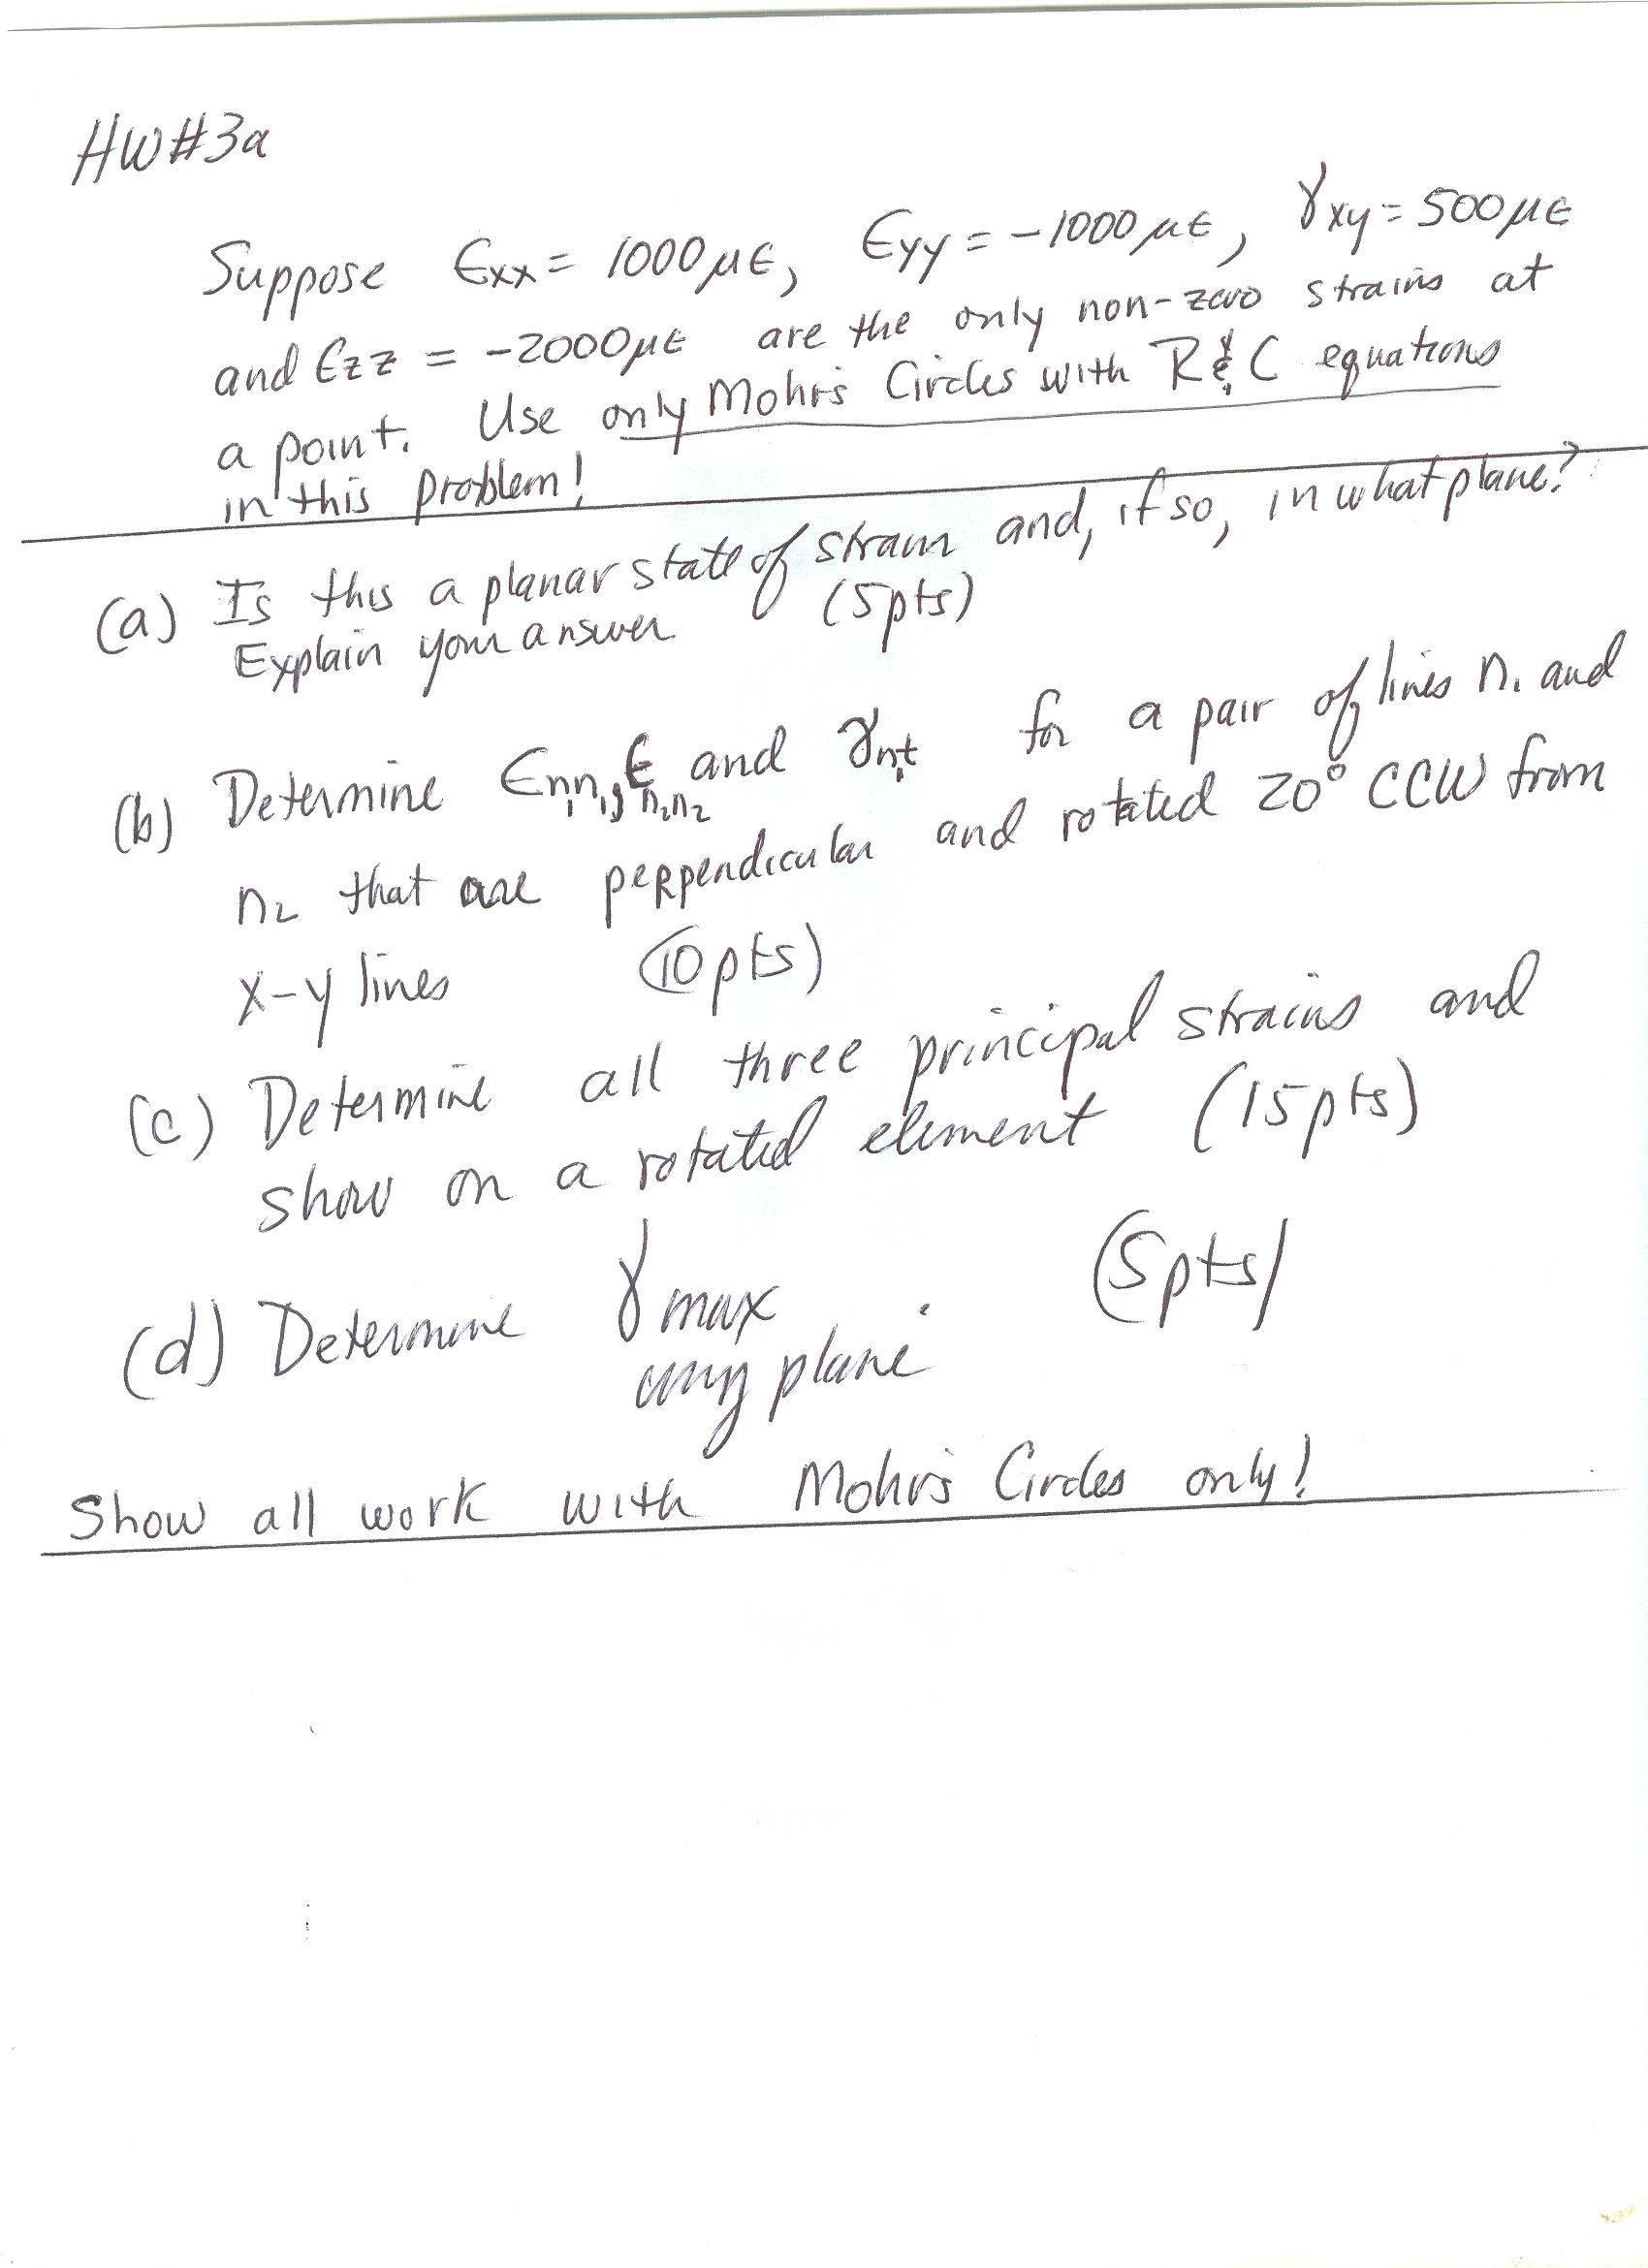 HW#3a
Suppose ϵxx = 1000μϵ, ϵyy = -1000μϵ, γxy = 500μϵ
and ϵzz = -2000μϵ are the only non-zero strains at
a point. Use only Mohr's Circles with R & C equations
in this problem!
(a) Is this a planar state of strain and, if so, in what plane?
Explain your answer (5pts)
(b) Determine ϵn₁n₁, ϵn₂n₂ and γn₁t for a pair of lines n₁ and
n₂ that are perpendicular and rotated 20° CCW from
x-y lines (10pts)
(c) Determine all three principal strains and
show on a rotated element (15pts)
(d) Determine γmax (5pts)
any plane.
Show all work with Mohr's Circles only!